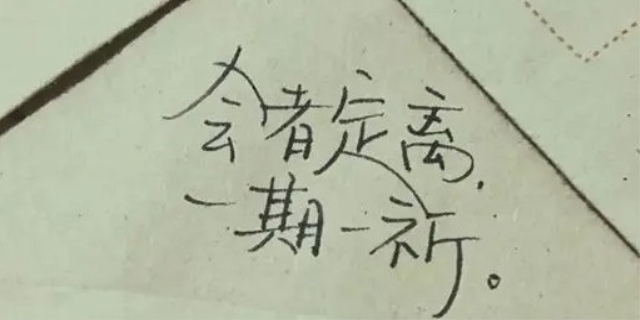 会者定离,
一期一祈。